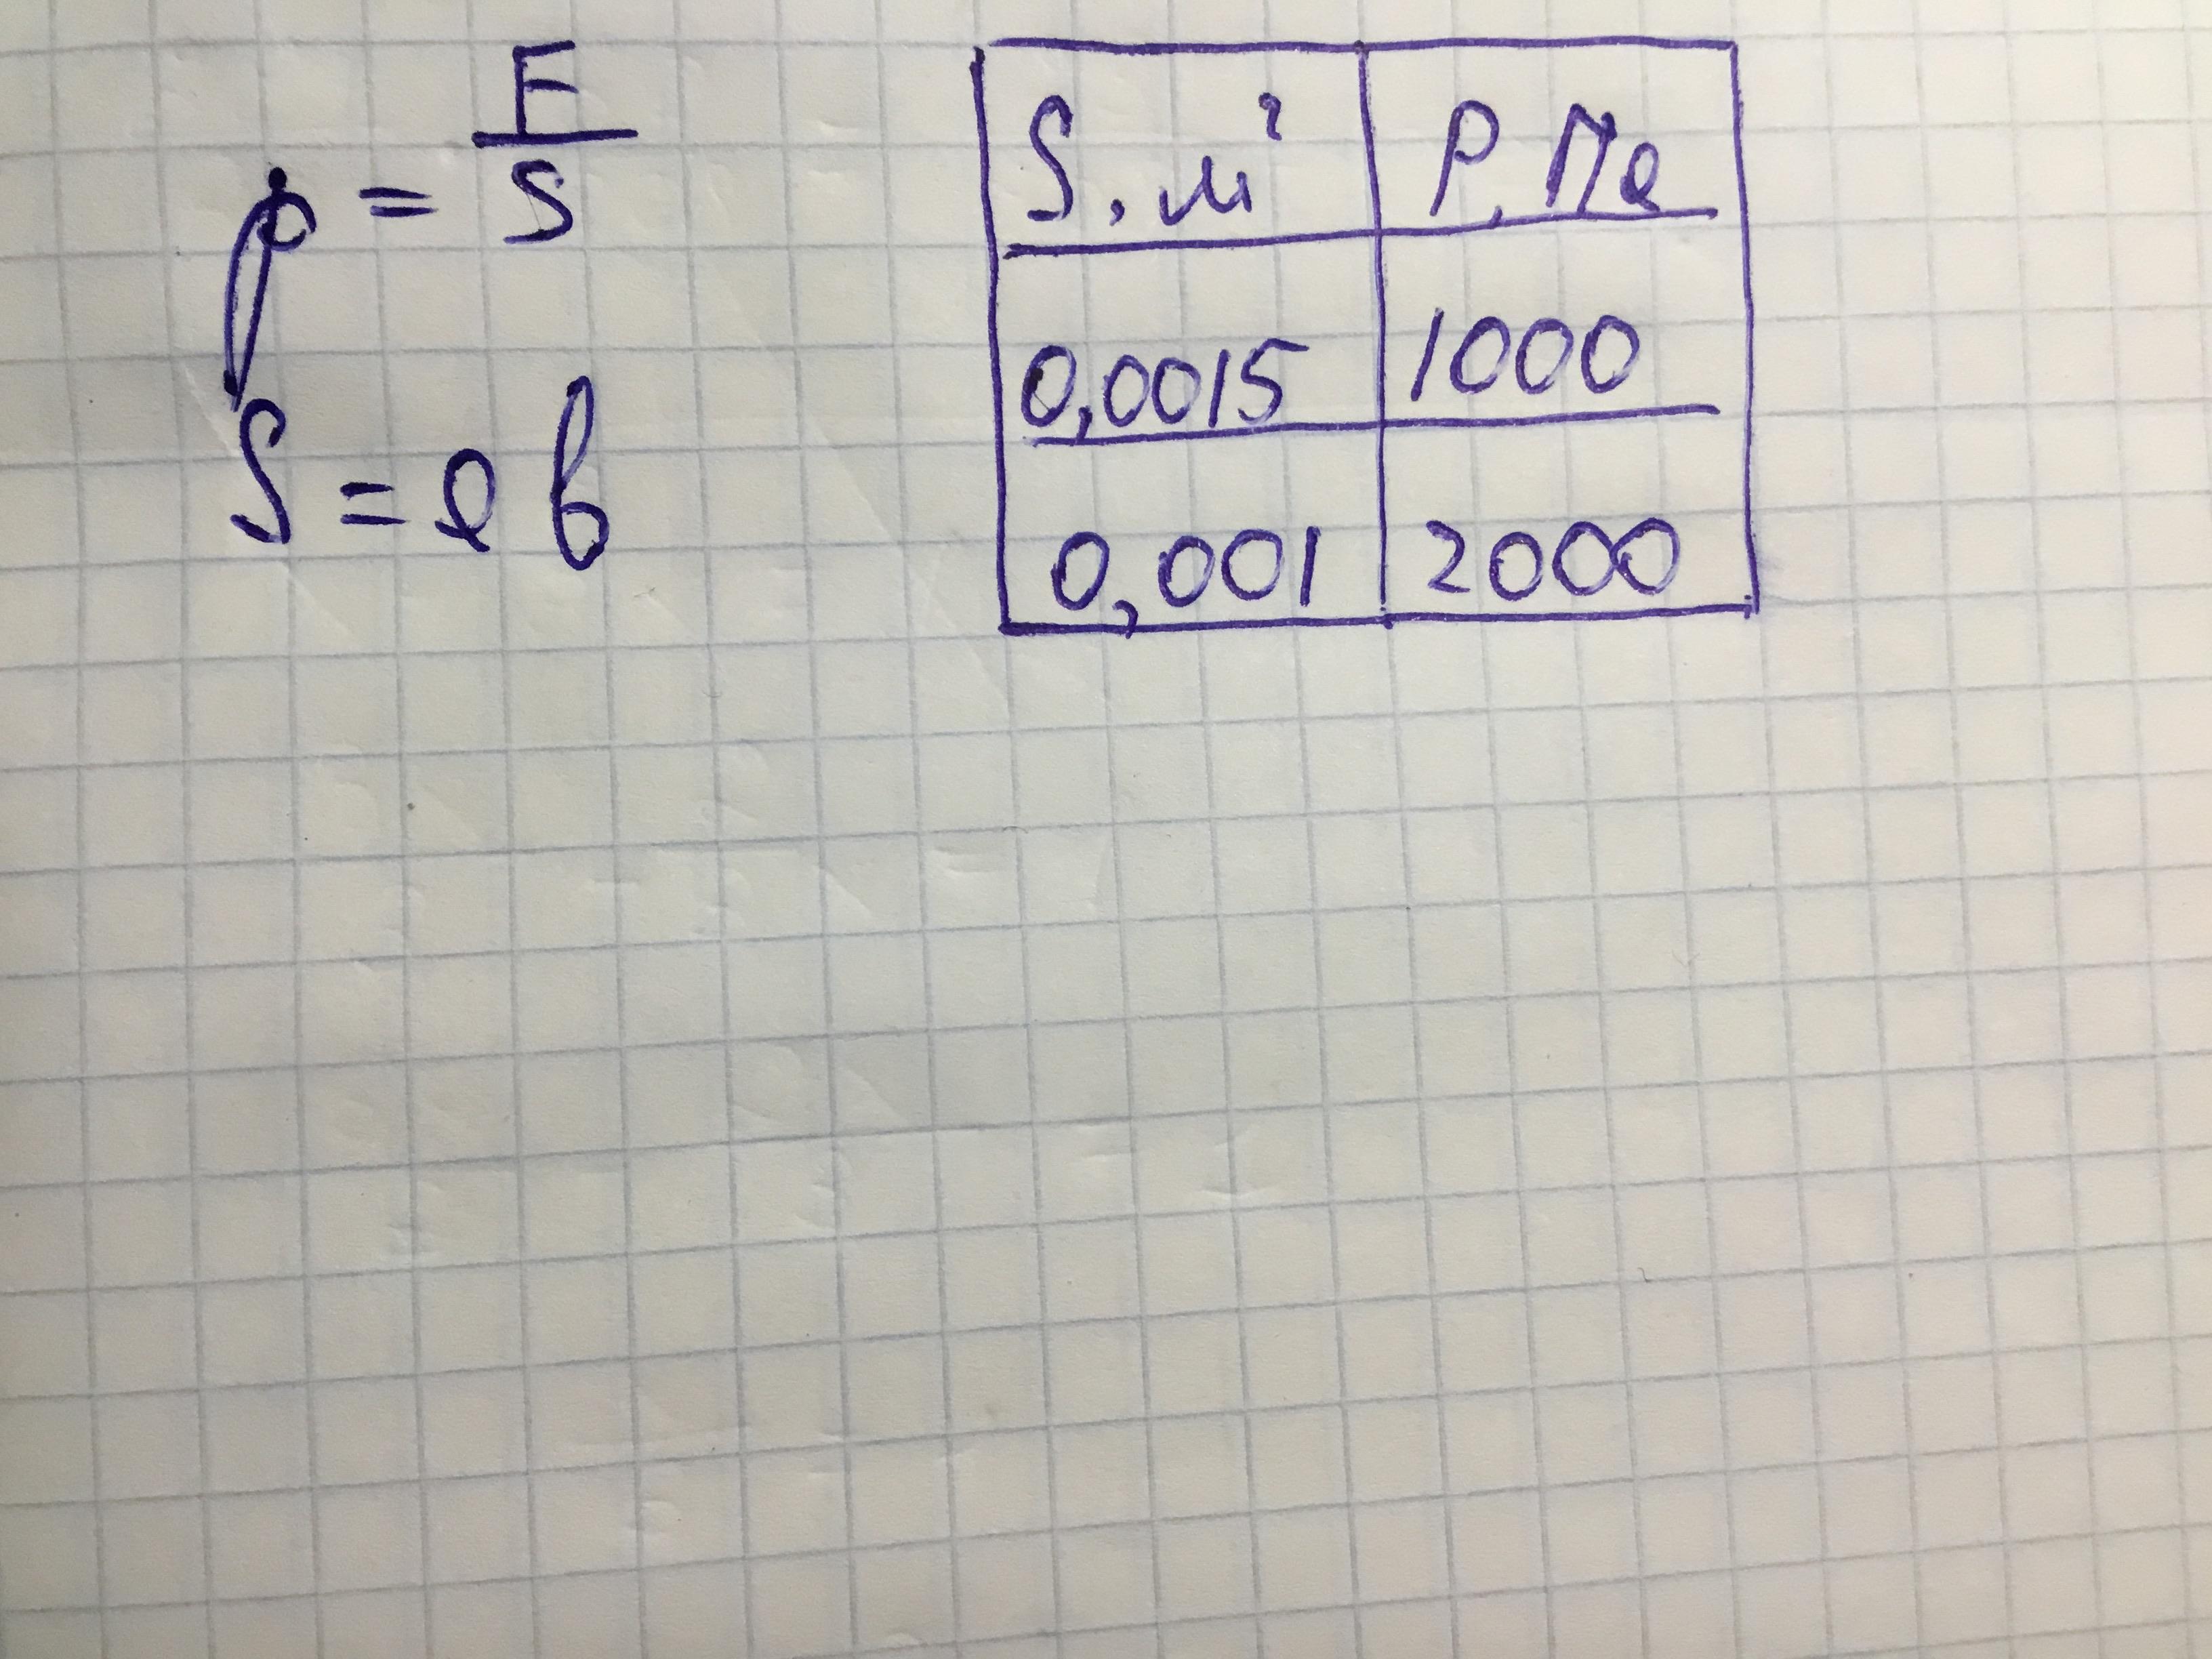 p = F/S
S = ab
S, м² P, Па
0,0015 1000
0,001 2000